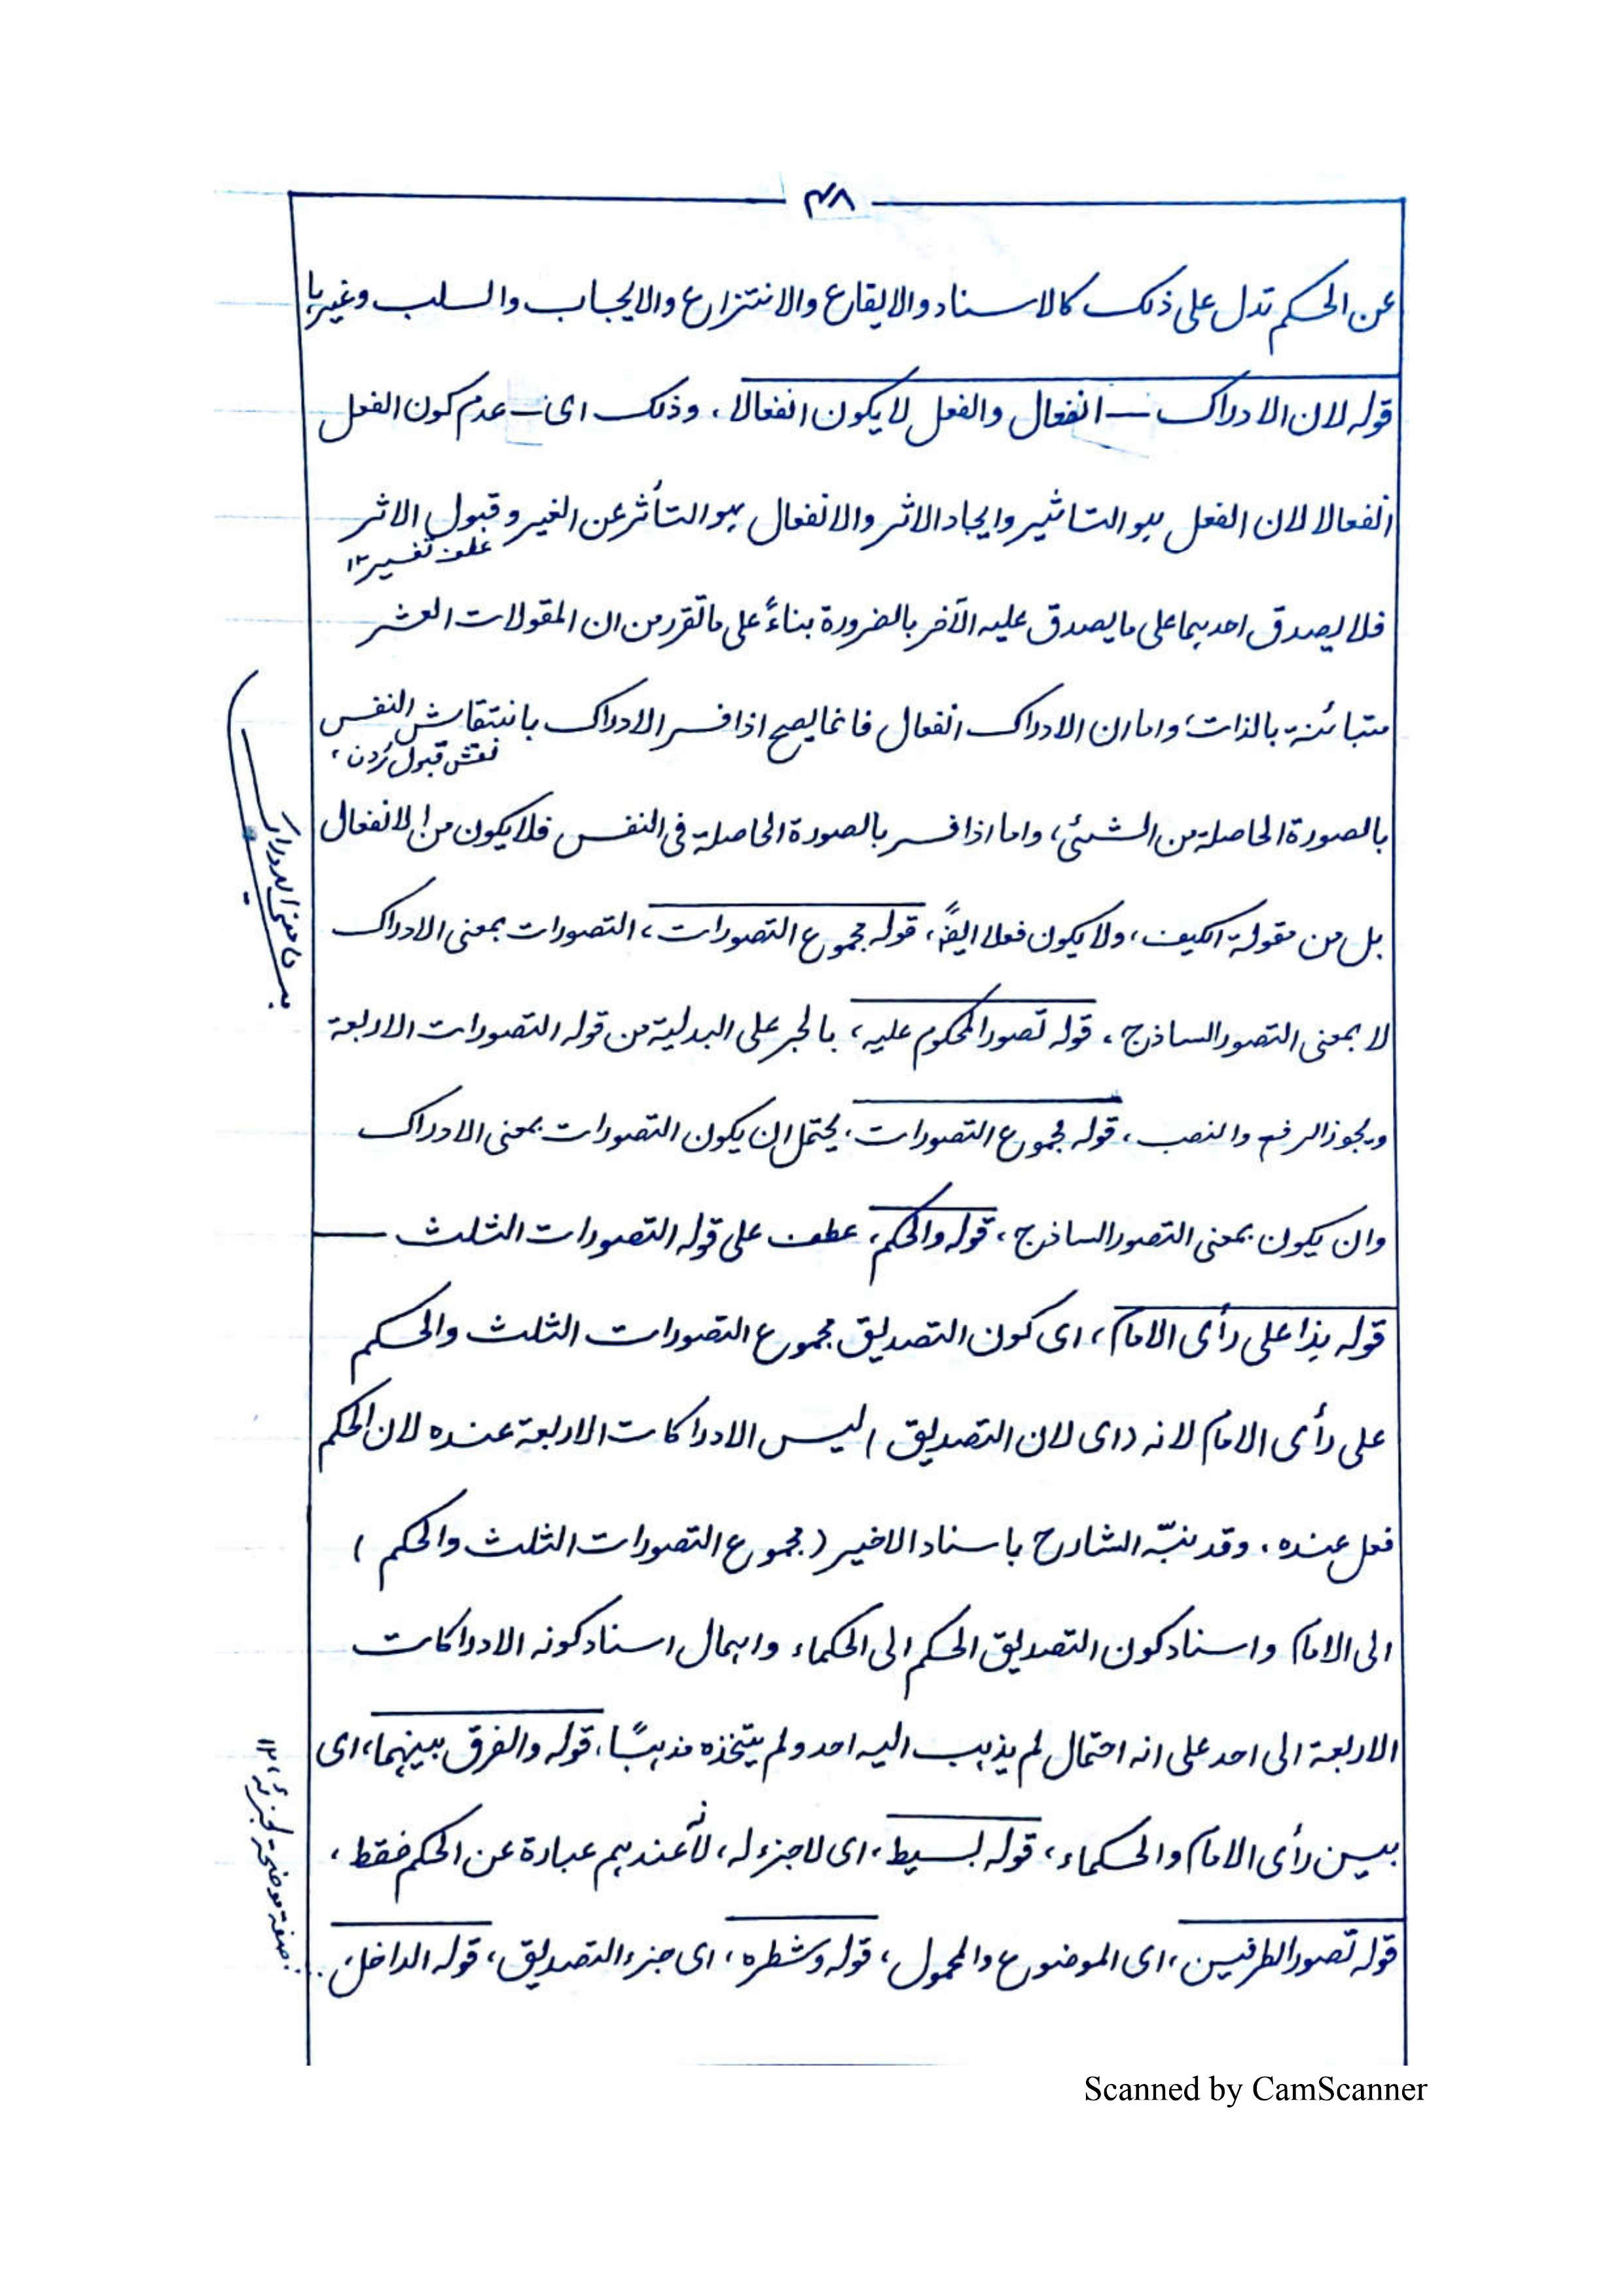 ۴۸
عن الحكم تدل على ذلك كالاسناد والايقاع والانتزاع والايجاب والسلب وغيرها
قوله لان الادراك انفعال والفعل لا يكون انفعالا، وذلك اى عدم كون الفعل
انفعالا لان الفعل هو التاثير وايجاد الاثر والانفعال هو التأثر عن الغير وقبول الاثر
عطف تفسير ۱۲
فلا يصدق احدهما على ما يصدق عليه الآخر بالضرورة بناءً على ما تقرر من ان المقولات العشر
متبائنة بالذات، واما ان الادراك انفعال فانما يصح اذا فسر الادراك بانتقاش النفس
نقش قبول کردن،
بالصورة الحاصلة من الشئ، واما اذا فسر بالصورة الحاصلة فى النفس فلا يكون من الانفعال
بل من مقولة الكيف، ولا يكون فعلا ايضًا، قوله مجموع التصورات، التصورات بمعنى الادراك
لا بمعنى التصور الساذج، قوله تصور المحكوم عليه، بالجر على البدلية من قوله التصورات الاربعة
ويجوز الرفع والنصب، قوله مجموع التصورات، يحتمل ان يكون التصورات بمعنى الادراك
وان يكون بمعنى التصور الساذج، قوله والحكم، عطف على قوله التصورات الثلث
قوله هذا على رأى الامام، اى كون التصديق مجموع التصورات الثلث والحكم
على رأى الامام لانه (اى لان التصديق) ليس الادراكات الاربعة عنده لان الحكم
فعل عنده. وقد نبّه الشارح باسناد الاخير (مجموع التصورات الثلث والحكم)
الى الامام واسناد كون التصديق الحكم الى الحكماء واهمال اسناد كونه الادراكات
الاربعة الى احد على انه احتمال لم يذهب اليه احد ولم يتخذه مذهبًا، قوله والفرق بينهما، اى
بين رأى الامام والحكماء، قوله بسيط، اى لا جزء له، لأنه عندهم عبارة عن الحكم فقط،
قوله تصور الطرفين، اى الموضوع والمحمول، قوله وشطره، اى جزء التصديق، قوله الداخل،
معنى الادراك
صفة موضحة لجزئه ۱۲
Scanned by CamScanner